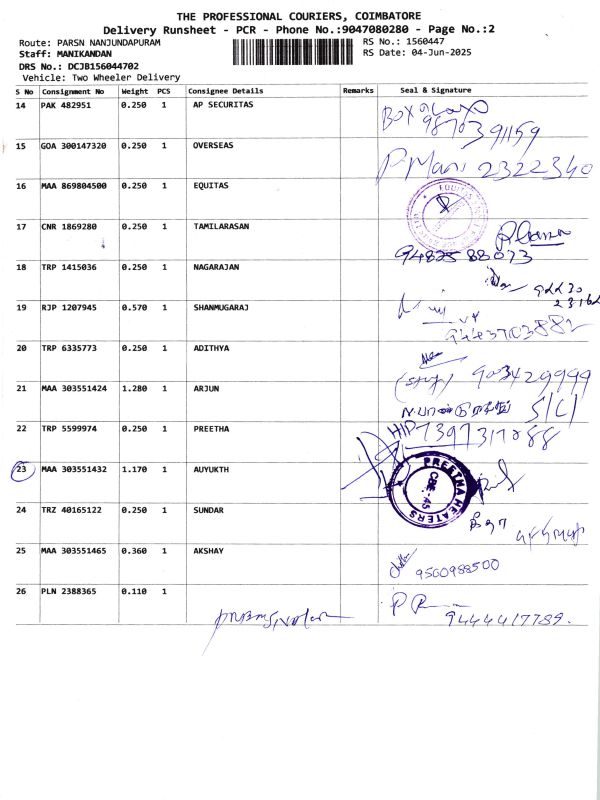 THE PROFESSIONAL COURIERS, COIMBATORE
Delivery Runsheet - PCR - Phone No.:9047080280 - Page No.:2
Route: PARSN NANJUNDAPURAM RS No.: 1560447
Staff: MANIKANDAN RS Date: 04-Jun-2025
DRS No.: DCJB156044702
Vehicle: Two Wheeler Delivery
S No Consignment No Weight PCS Consignee Details Remarks Seal & Signature
14 PAK 482951 0.250 1 AP SECURITAS
BOX
15 GOA 300147320 0.250 1 OVERSEAS
P Mani 2322340
16 MAA 869804500 0.250 1 EQUITAS
EQUITAS
17 CNR 1869280 0.250 1 TAMILARASAN
18 TRP 1415036 0.250 1 NAGARAJAN
19 RJP 1207945 0.570 1 SHANMUGARAJ
9443703882
20 TRP 6335773 0.250 1 ADITHYA
9003429999
21 MAA 303551424 1.280 1 ARJUN
22 TRP 5599974 0.250 1 PREETHA
23 MAA 303551432 1.170 1 AUYUKTH
PREETHA HEATERS
CBE-45
24 TRZ 40165122 0.250 1 SUNDAR
25 MAA 303551465 0.360 1 AKSHAY
9500988500
26 PLN 2388365 0.110 1
9444417789.